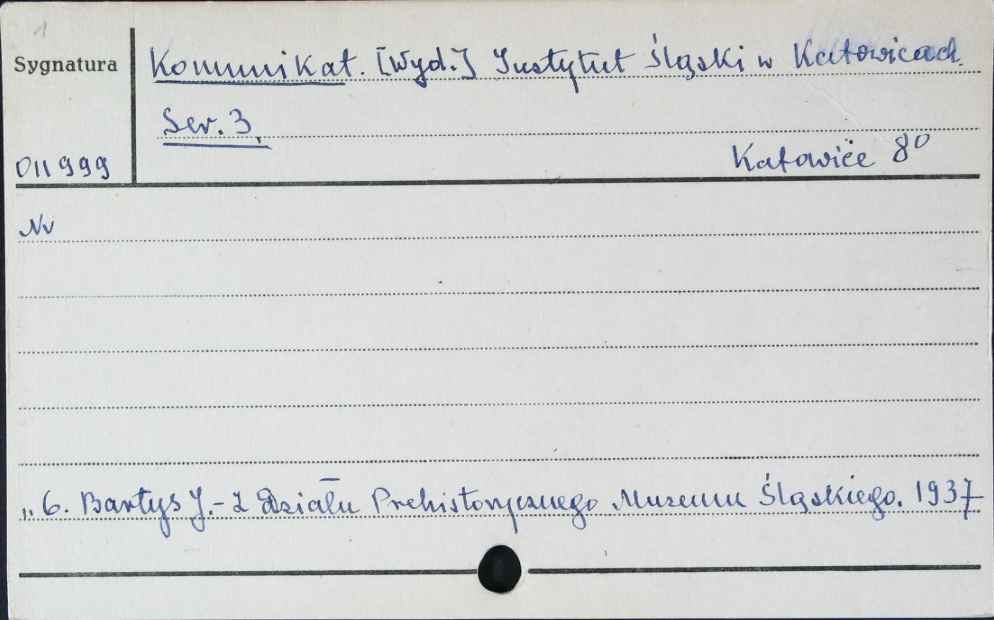 1
Sygnatura
Komunikat. [Wyd.] Instytut Śląski w Katowicach.
Ser. 3.
011999
Katowice 8⁰
Nr
„ 6. Bartys J. - Z Działu Prehistorycznego Muzeum Śląskiego. 1937